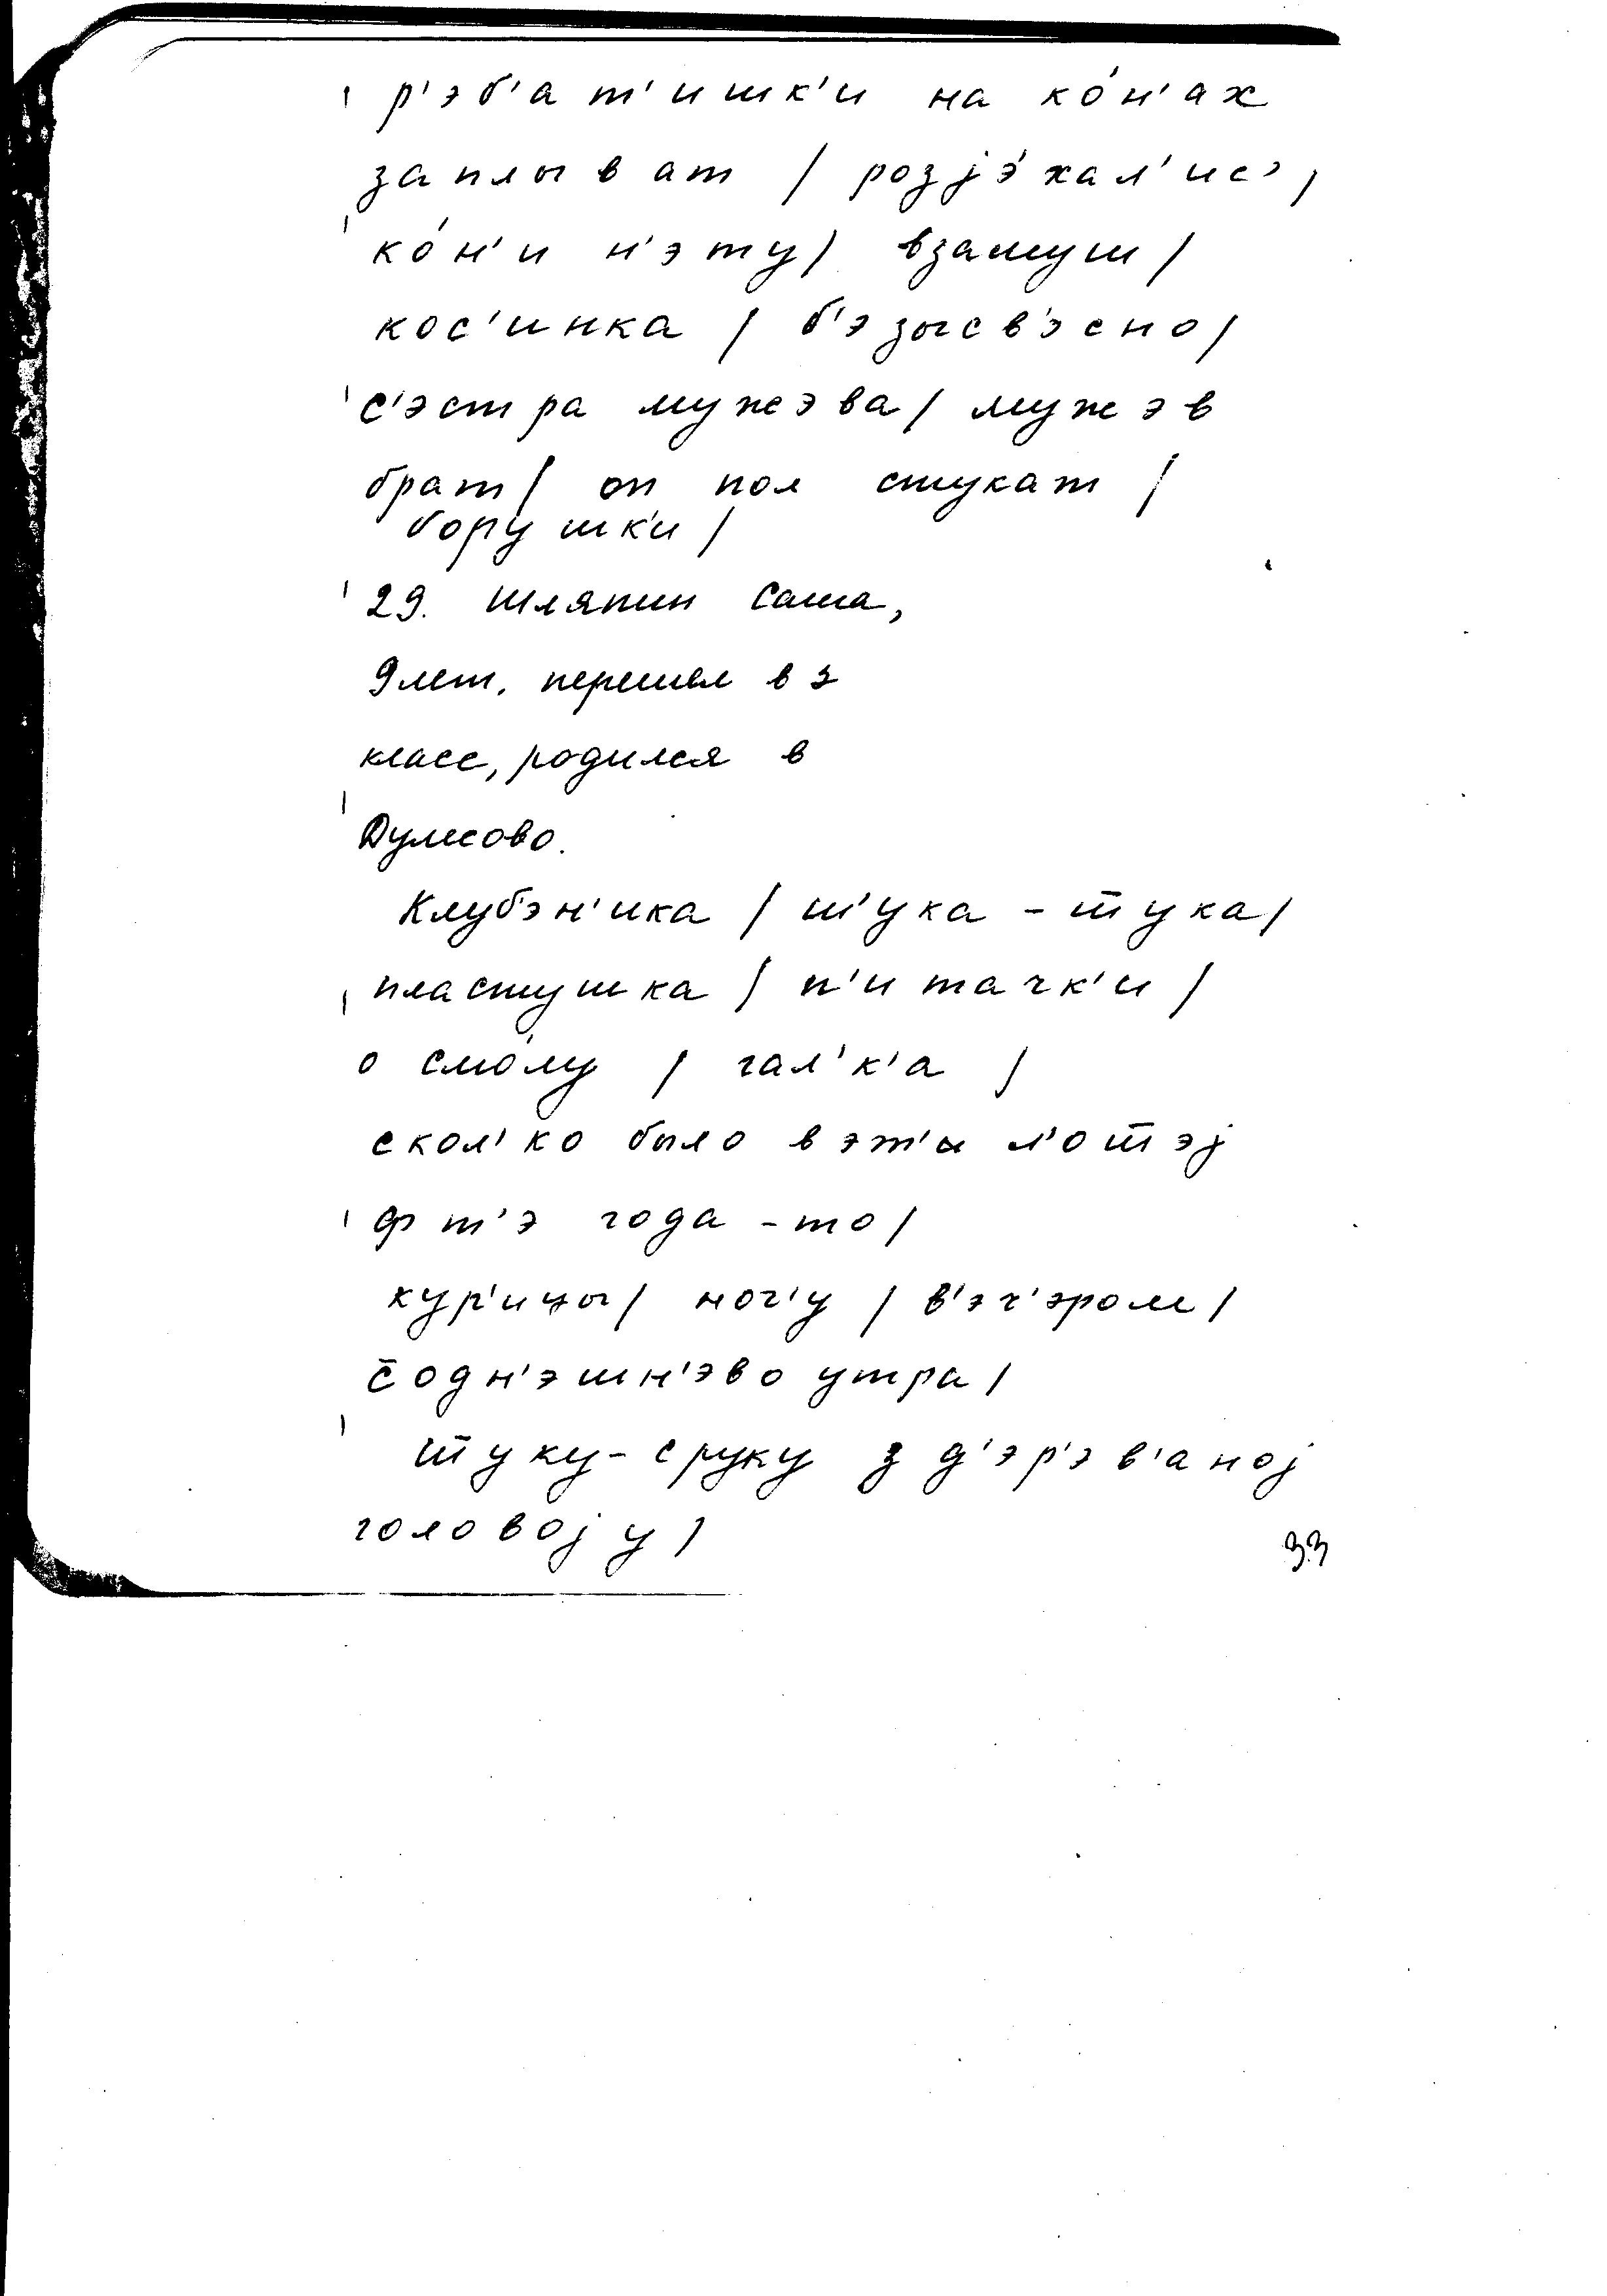 р'эб'ат'ишк'и на ко́н'ах
заплыват / розjэ́хал'ис' /
ко́н'и н'эту / взамуш /
кос'инка / б'эзысв'эсно /
с'эстра мужэва / мужэв
брат / он пол стукат /
бору́шк'и /
29. Шляпин Саша,
9 лет. перешел в 3
класс, родился в
Дулесово.
Клуб'эн'ика / ш'ука - ш̄ука /
пластушка / п'итачк'и /
о смо́лу / гал'к'а /
скол'ко было в эт'и л'ош̄эj
ф т'э года - то /
кур'ицы / ноч'у / в'эч'эром /
с̄одн'эшн'эво утра /
ш̄уку - с руку з д'эр'эв'аноj
головоjу /
33